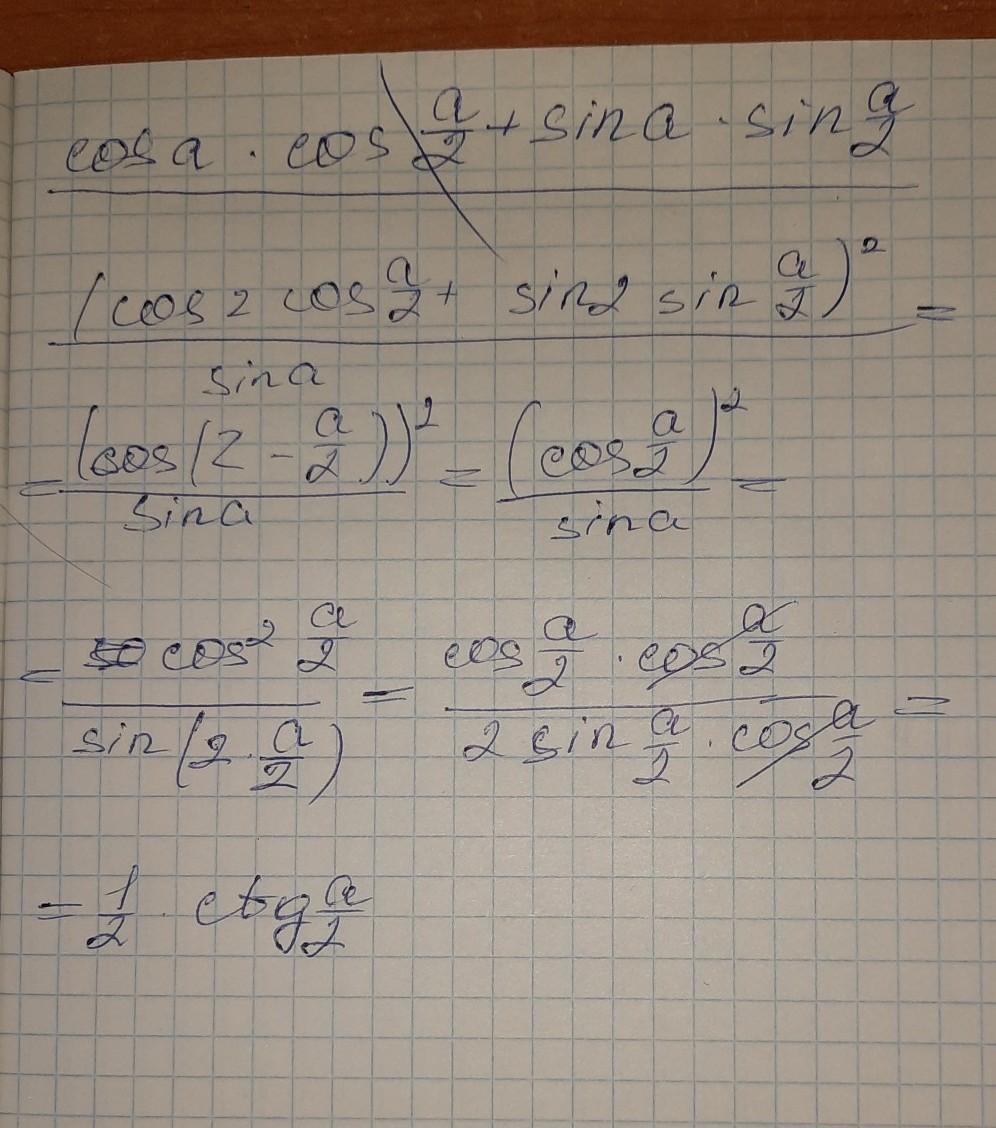 cos a · cos a/2 + sin a · sin a/2
(cos 2 cos a/2 + sin 2 sin a/2)² =
sin a
= (cos(2 - a/2))² / sin a = (cos a/2)² / sin a =
= cos² a/2 / sin(2 · a/2) = cos a/2 · cos a/2 / 2 sin a/2 · cos a/2 =
= 1/2 · ctg a/2